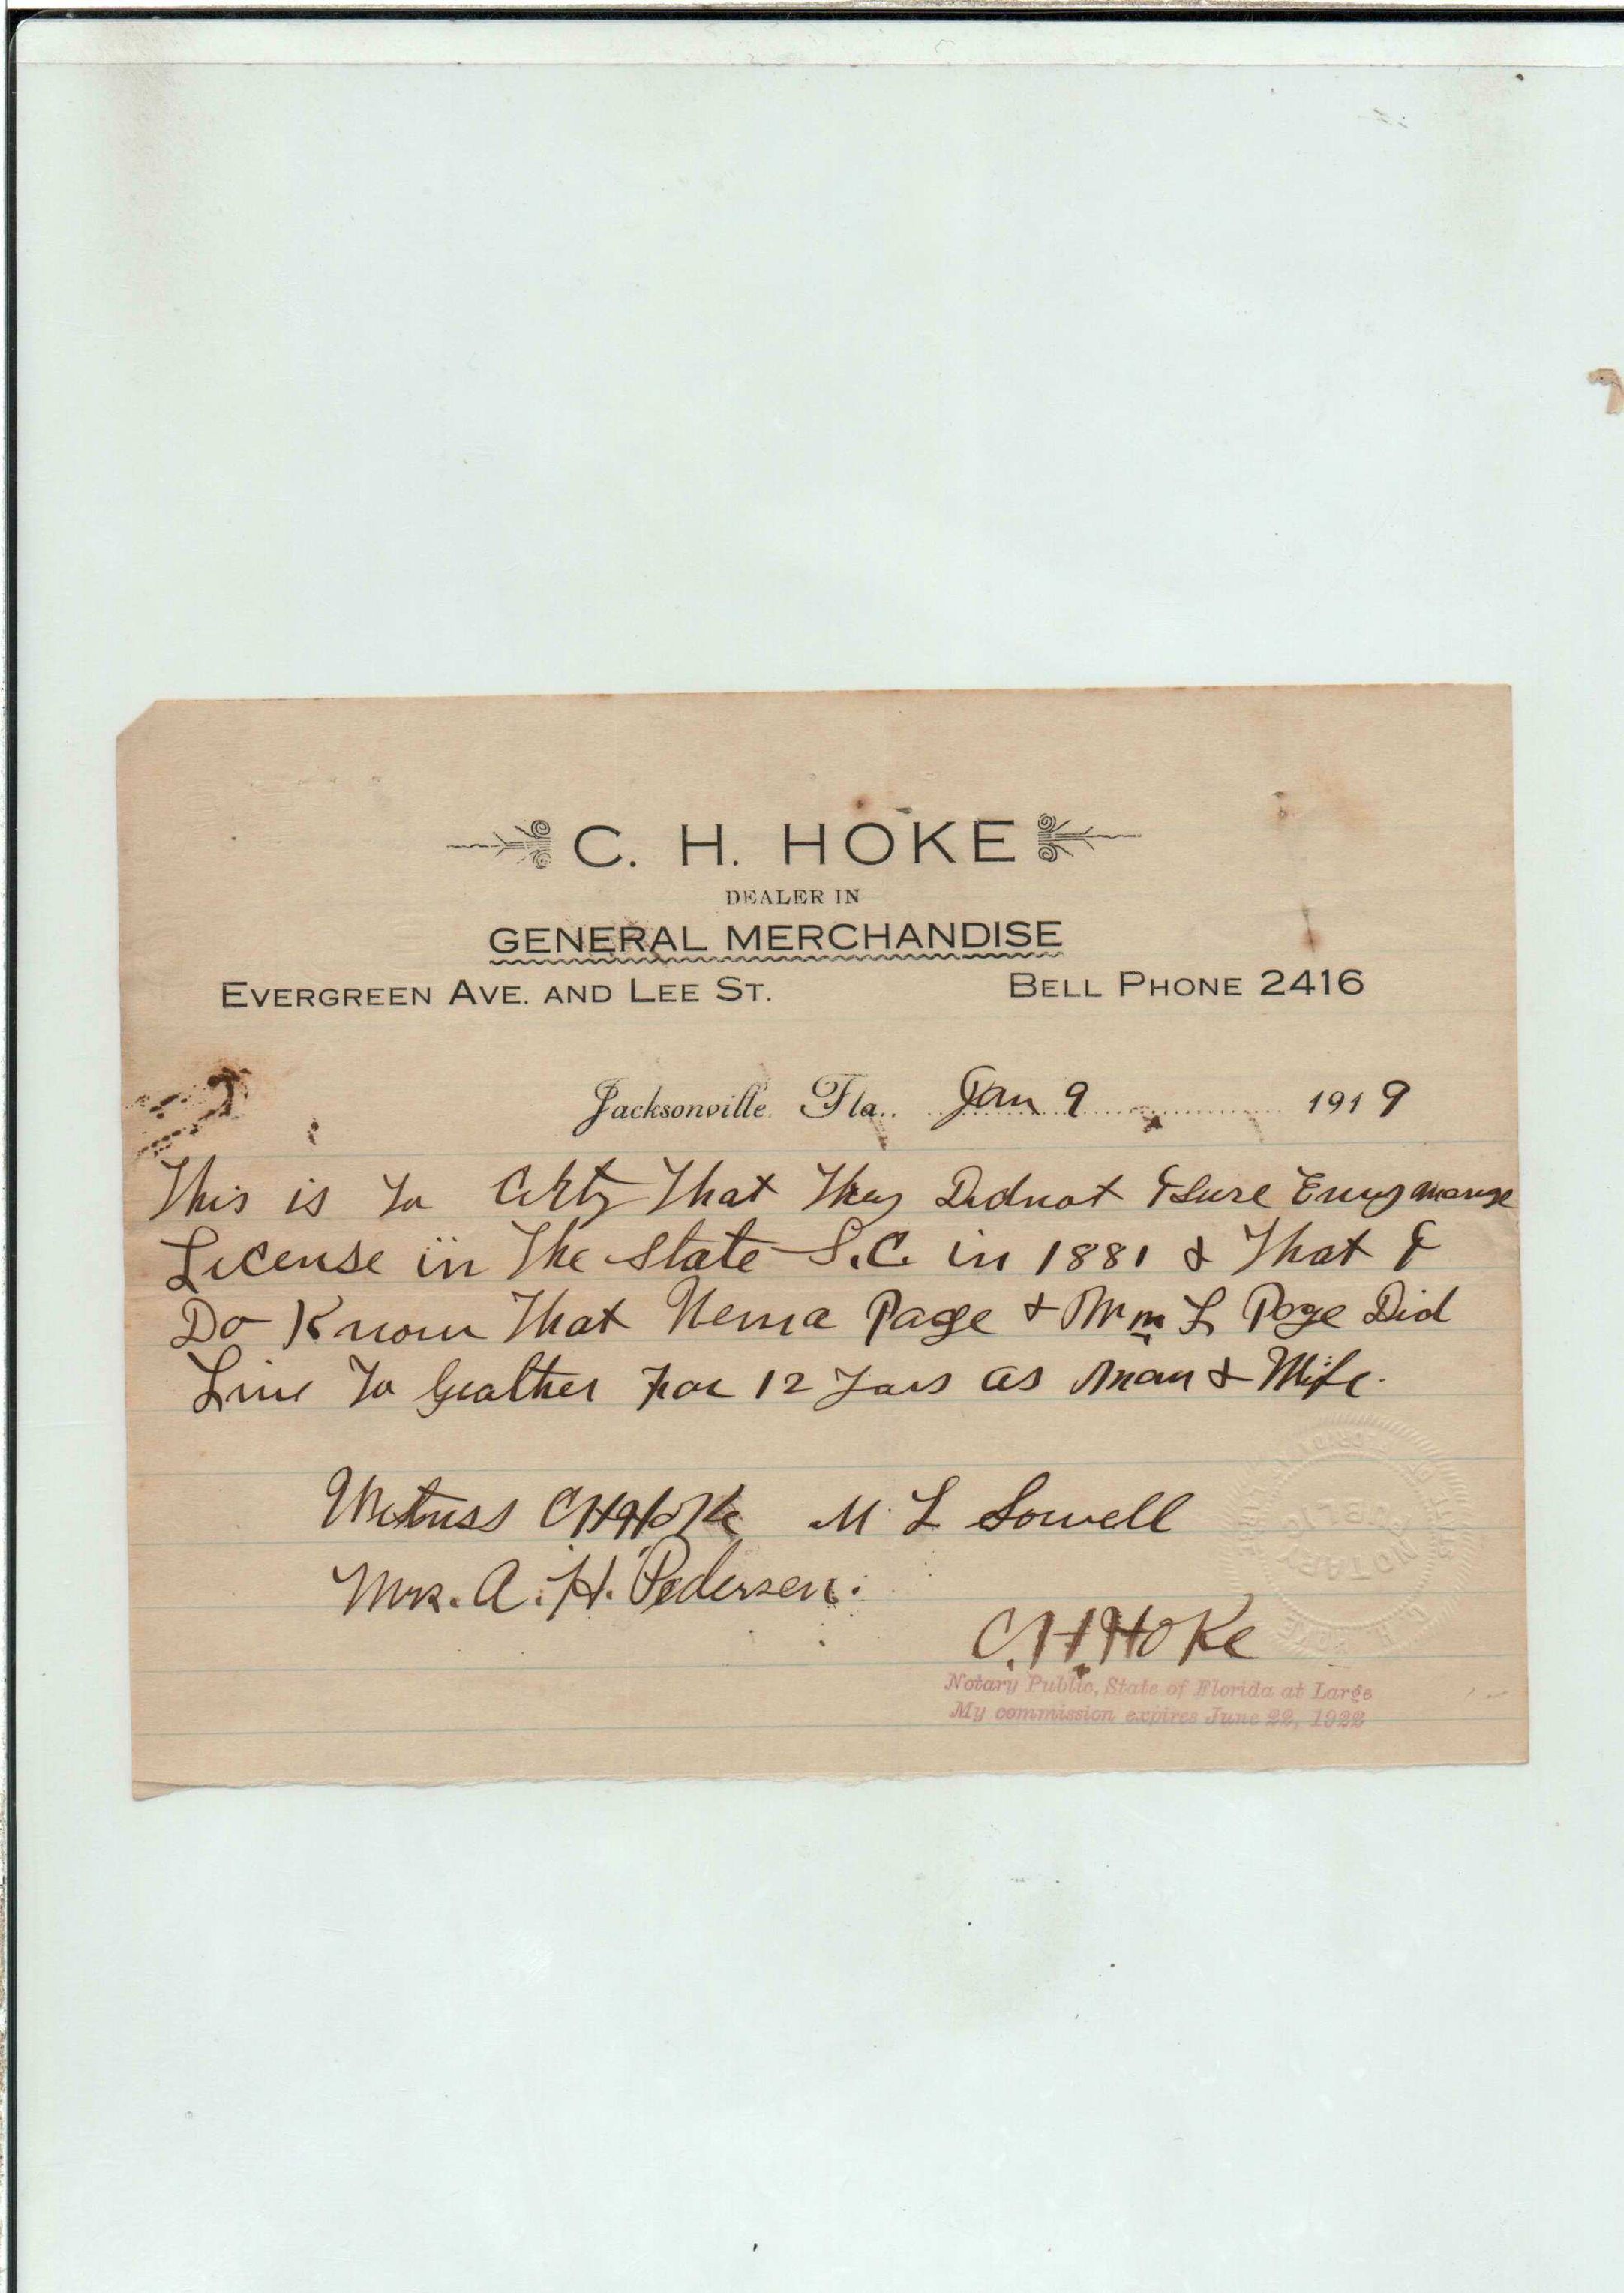 C. H. HOKE
DEALER IN
GENERAL MERCHANDISE
EVERGREEN AVE. AND LEE ST. BELL PHONE 2416
Jacksonville, Fla., Jan 9 1919
This is To That They Didnot
License in The State S.C. in 1881 & That I
Do Know That Page & Wm L Page Did
Live To Geather For 12 as Man & Wife.
Witness C H Hoke M. L Sowell
Mrs. A. H. Pedersen.
C. H. HOKe
Notary Public, State of Florida at Large
My commission expires June 22, 1922
NOTARY PUBLIC